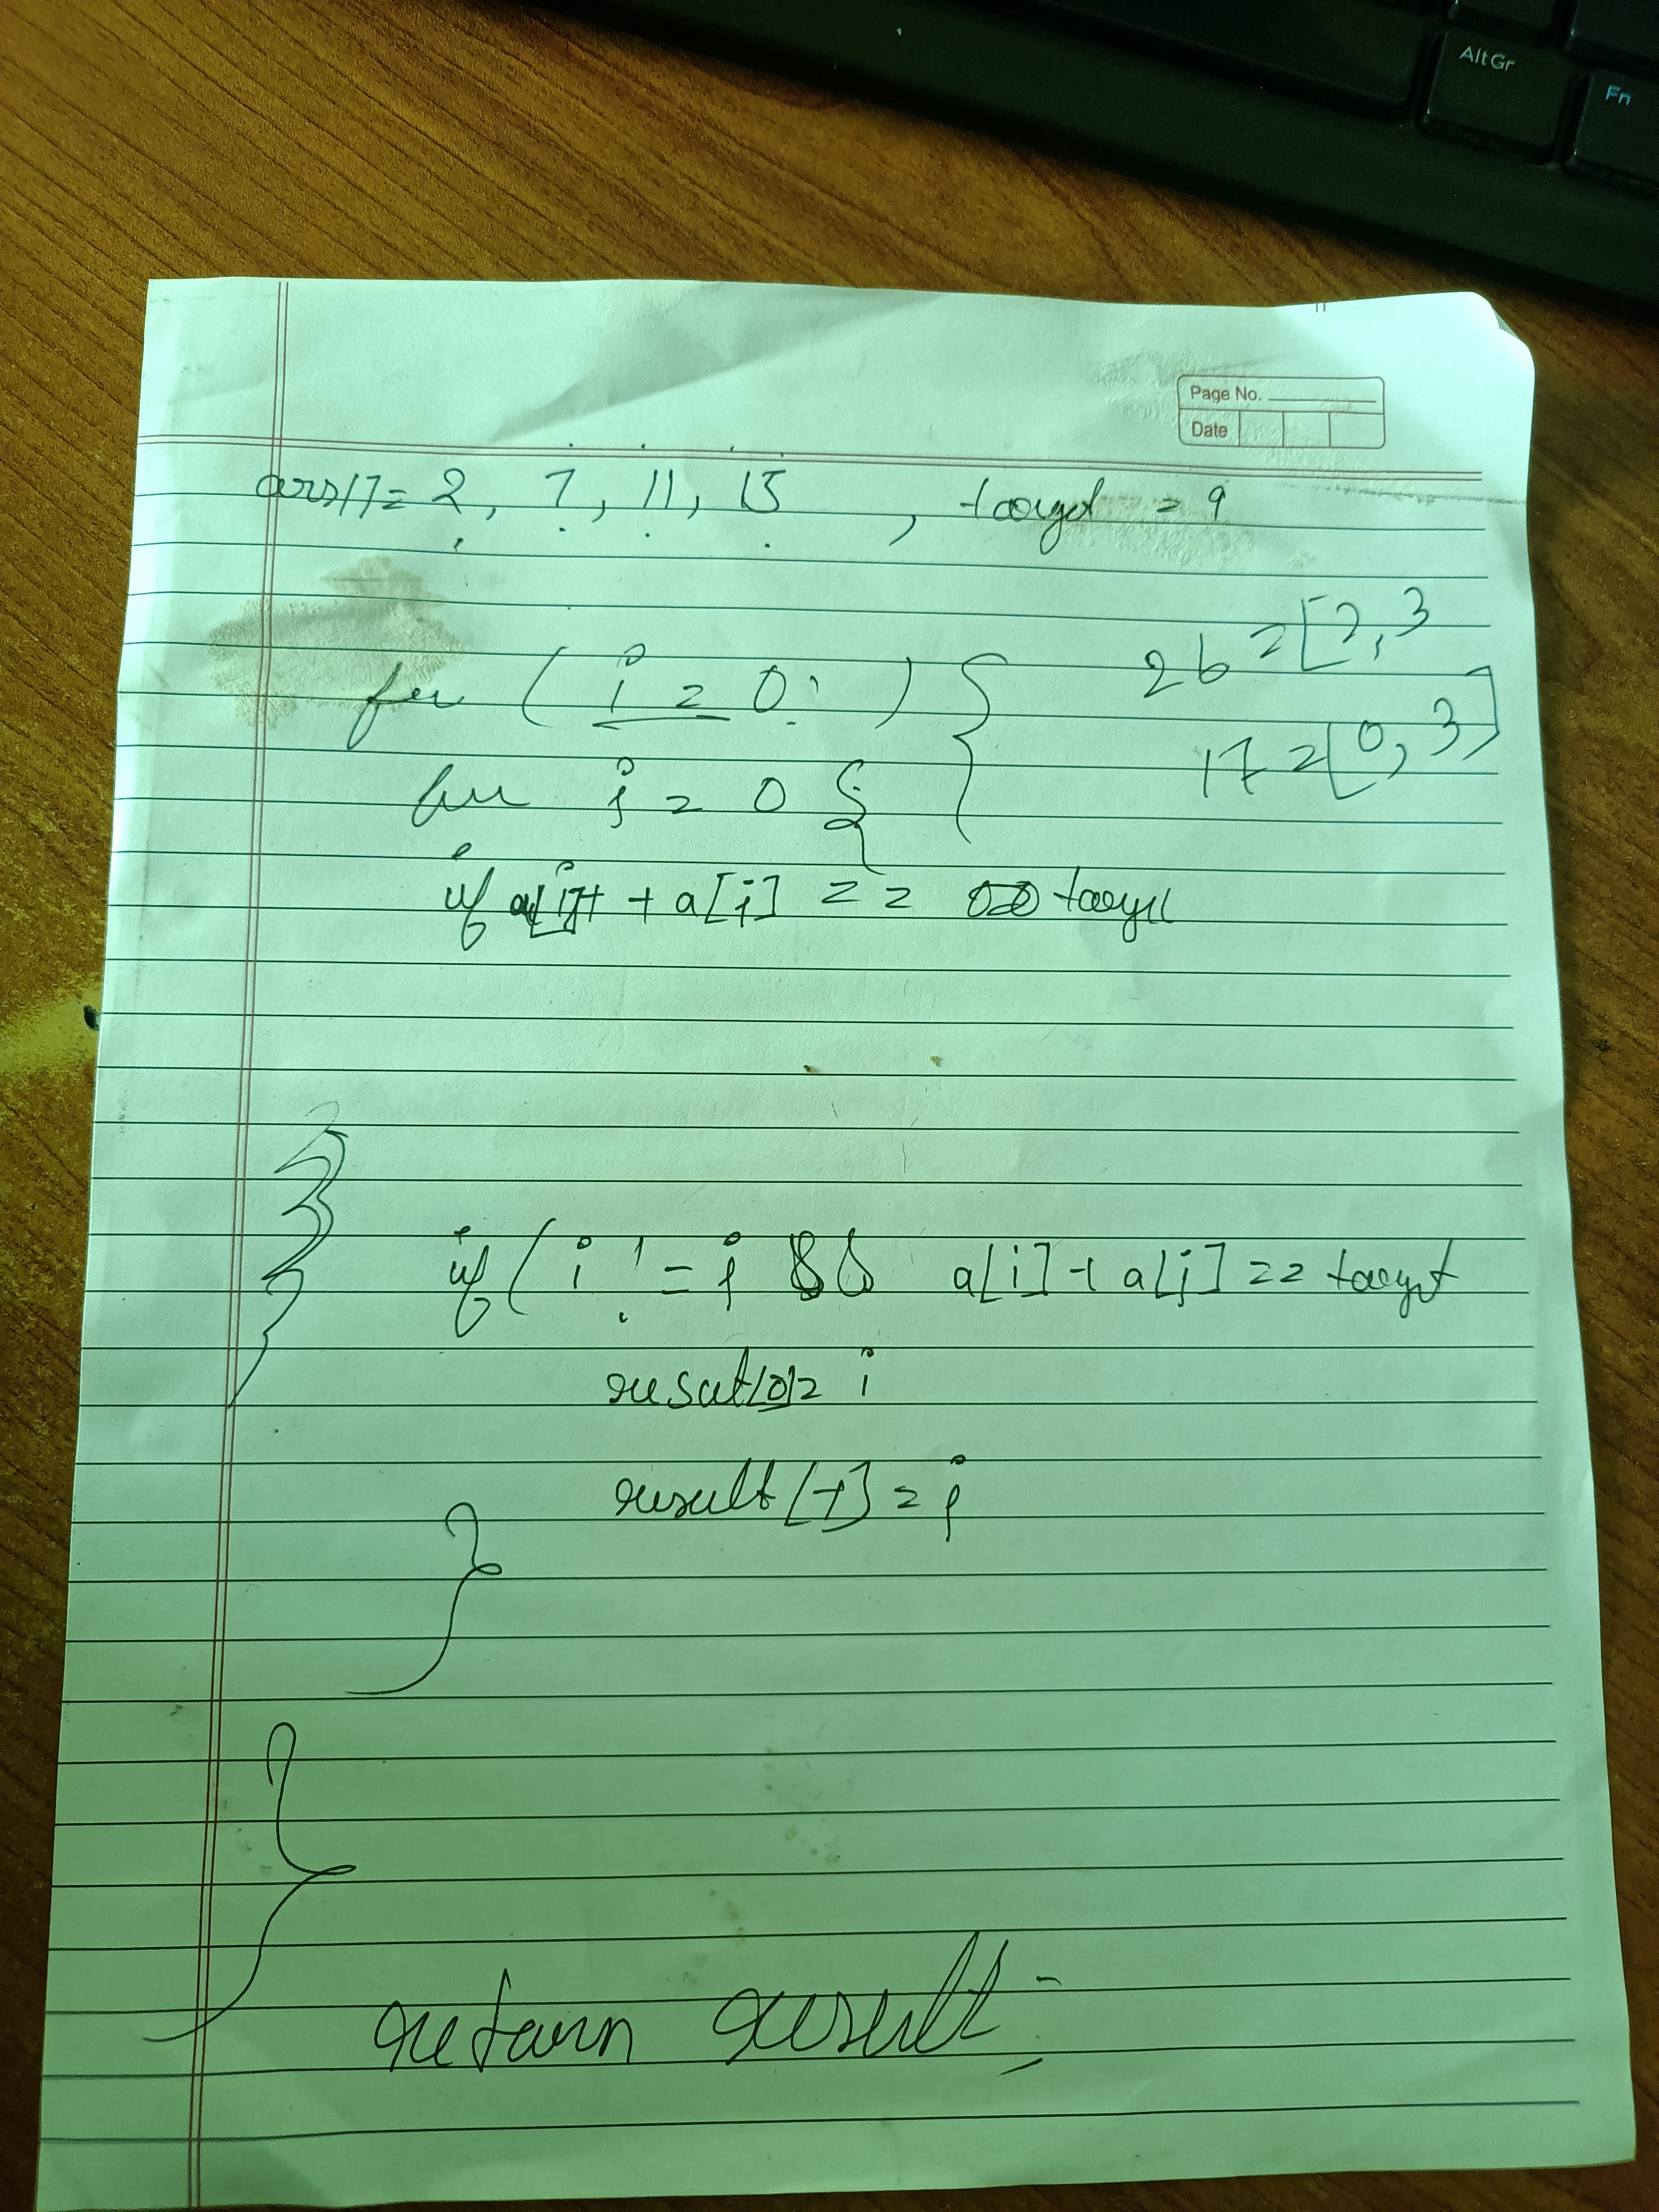 AltGr
Fn
Page No.
Date
arr[] = 2, 7, 11, 15 , target = 9
for ( i = 0; ) {
26 = [2, 3]
for j = 0 {
17 = [0, 3]
if a[i] + a[j] == target
if ( i != j && a[i] + a[j] == target
result[0] = i
result[1] = j
}
}
return result;